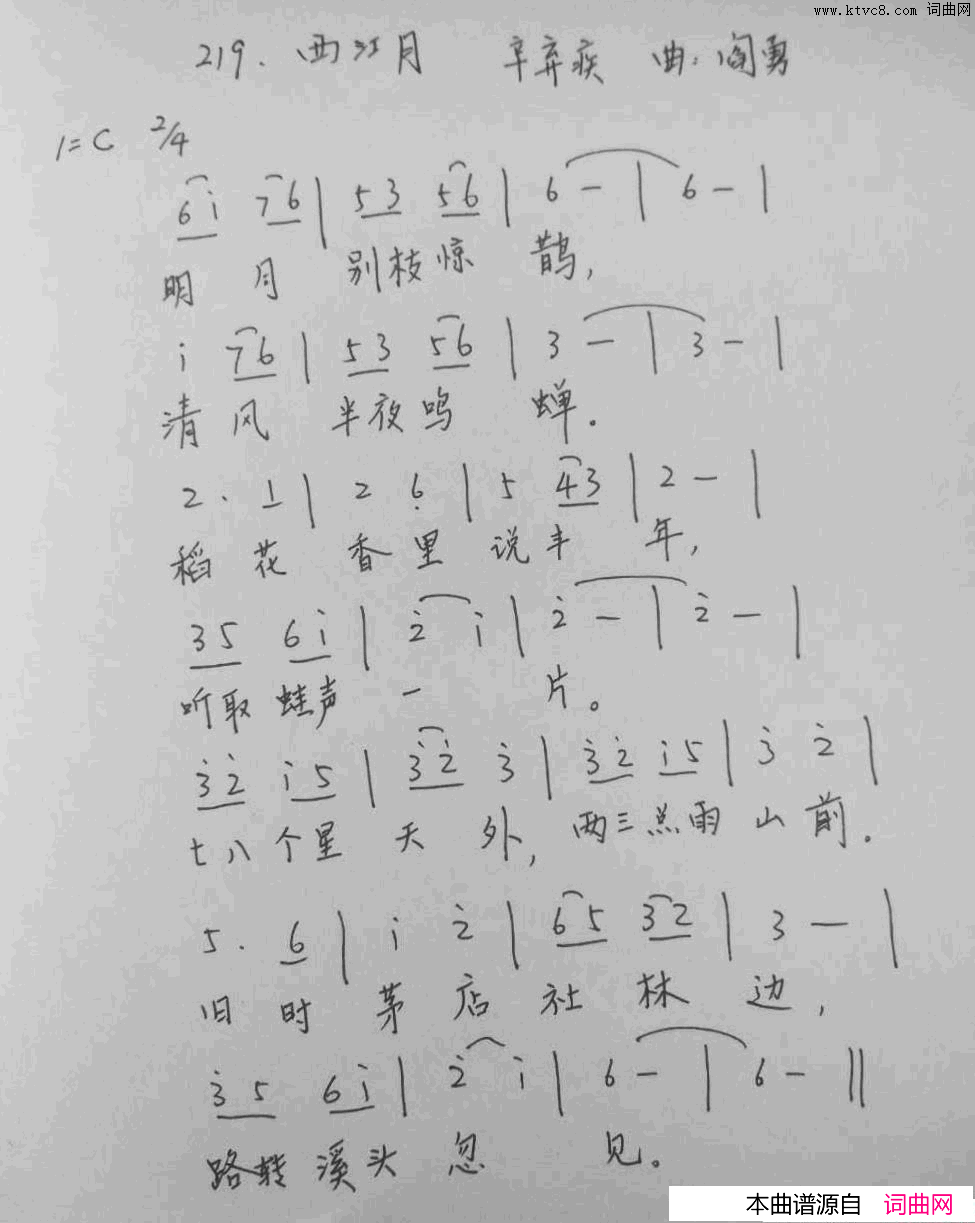 www.ktvc8.com 词曲网
219. 西江月 辛弃疾 曲: 阎勇
1=C 2/4
6i 76 | 53 56 | 6 - | 6 - |
明 月 别枝惊 鹊,
i 76 | 53 56 | 3 - | 3 - |
清 风 半夜鸣 蝉。
2 . 1 | 2 6̣ | 5 43 | 2 - |
稻 花 香 里 说丰 年,
35 6i | 2̇ i | 2̇ - | 2̇ - |
听取 蛙声 一 片。
3̇2̇ i5 | 3̇2̇ 3̇ | 3̇2̇ i5 | 3̇ 2̇ |
七八个星 天 外, 两三点雨 山 前.
5 . 6 | i 2̇ | 65 32 | 3 — |
旧 时 茅 店 社 林 边,
3̇5 6i | 2̇ i | 6 - | 6 - ‖
路转 溪头 忽 见。
本曲谱源自 词曲网